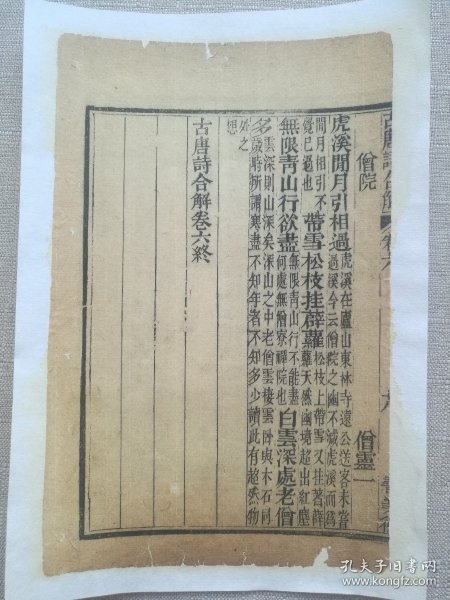 古唐詩合解 卷六
僧院 僧靈一
虎溪閒月引相過 虎溪在廬山東林寺遠公送客未嘗
過溪今云僧院之幽不減虎溪而爲
閒月相引不
覺已過也 帶雪松枝挂薜蘿 松枝上帶雪又挂著薜
蘿天然幽境超出紅塵
無限青山行欲盡 無限青山行不能盡
何處無僧寮禪院也 白雲深處老僧
多 雲深則山深矣深山之中老僧雲棲雲臥與木石同
歲時所謂寒盡不知年者不知多少讀此有超然物
外之
想
古唐詩合解卷六終
孔夫子旧书网
www.kongfz.com